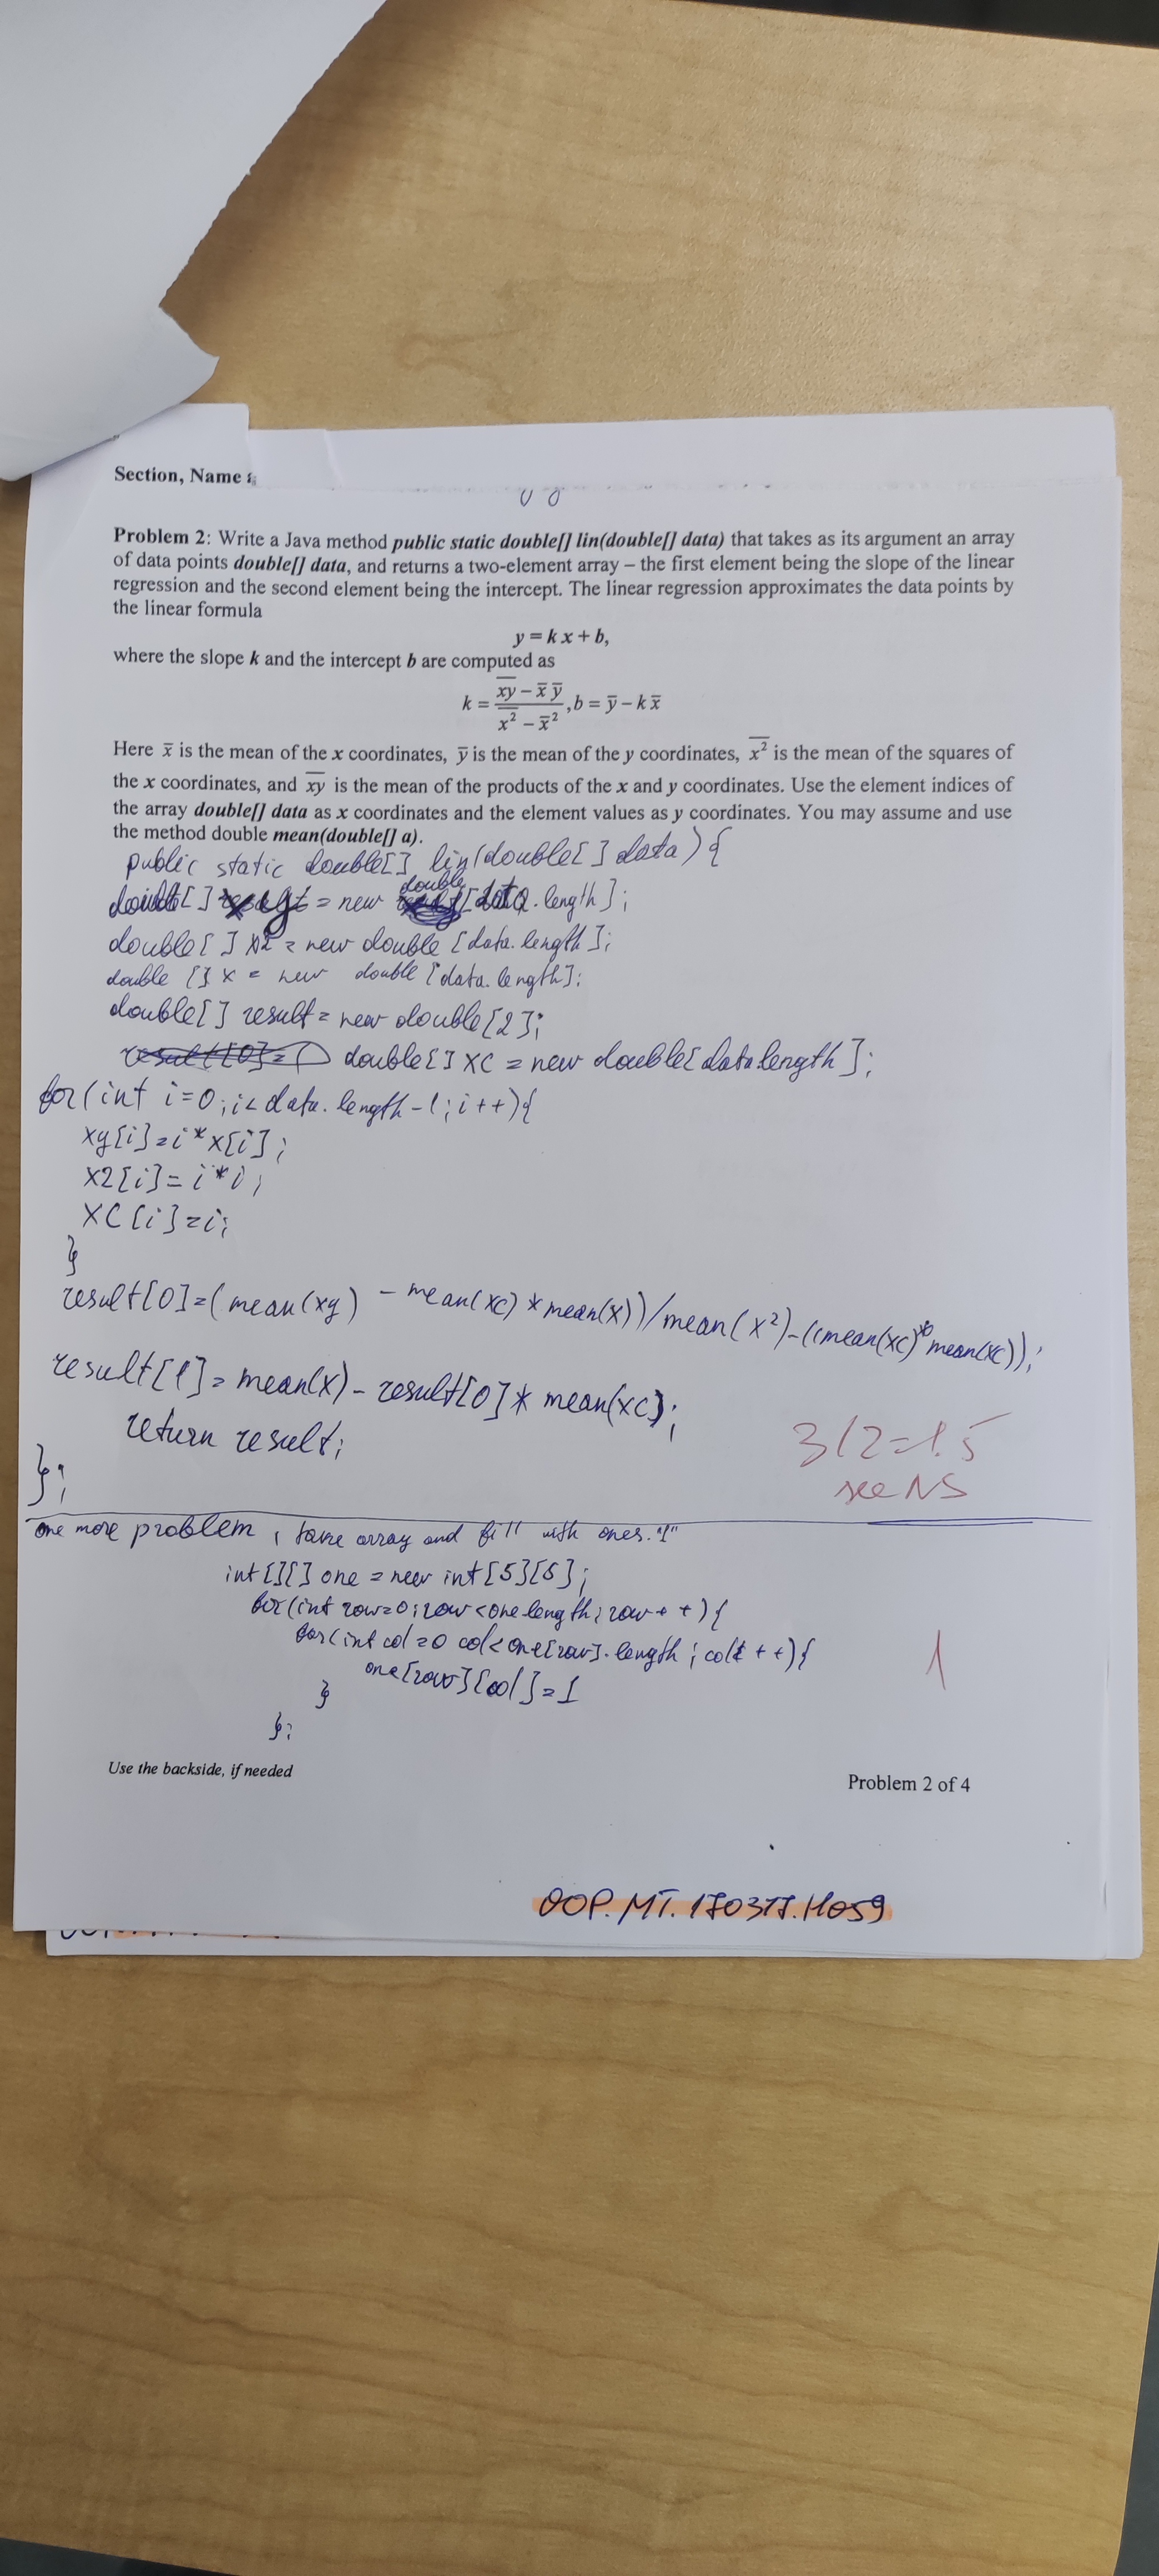 Section, Name
Problem 2: Write a Java method public static double[] lin(double[] data) that takes as its argument an array
of data points double[] data, and returns a two-element array – the first element being the slope of the linear
regression and the second element being the intercept. The linear regression approximates the data points by
the linear formula
y = k x + b,
where the slope k and the intercept b are computed as
k = (x̅y̅ − x̄ ȳ) / (x̅²̅ − x̄²), b = ȳ − k x̄
Here x̄ is the mean of the x coordinates, ȳ is the mean of the y coordinates, x̅²̅ is the mean of the squares of
the x coordinates, and x̅y̅ is the mean of the products of the x and y coordinates. Use the element indices of
the array double[] data as x coordinates and the element values as y coordinates. You may assume and use
the method double mean(double[] a).
public static double[] lin(double[] data){
double[] xy = new double[data.length];
double[] x2 = new double [data.length];
double [] x = new double [data.length];
double[] result = new double[2];
double[] xc = new double[data.length];
for(int i=0; i< data.length-1; i++){
xy[i]=i*x[i];
x2[i]= i*i;
xc[i]=i;
}
result[0]=(mean(xy) - mean(xc)*mean(x))/mean(x²)-((mean(xc)*mean(xc));
result[1]= mean(x)- result[0]* mean(xc);
return result;
};
3/2=1.5
see NS
one more problem, array and fill with ones. "1"
int[][] one = new int[5][5];
for(int row=0; row<one.length; row++){
for(int col=0 col<one[row].length; col++){
one[row][col]=1
}
};
1
Use the backside, if needed
Problem 2 of 4
OOP.MT.170317.H059